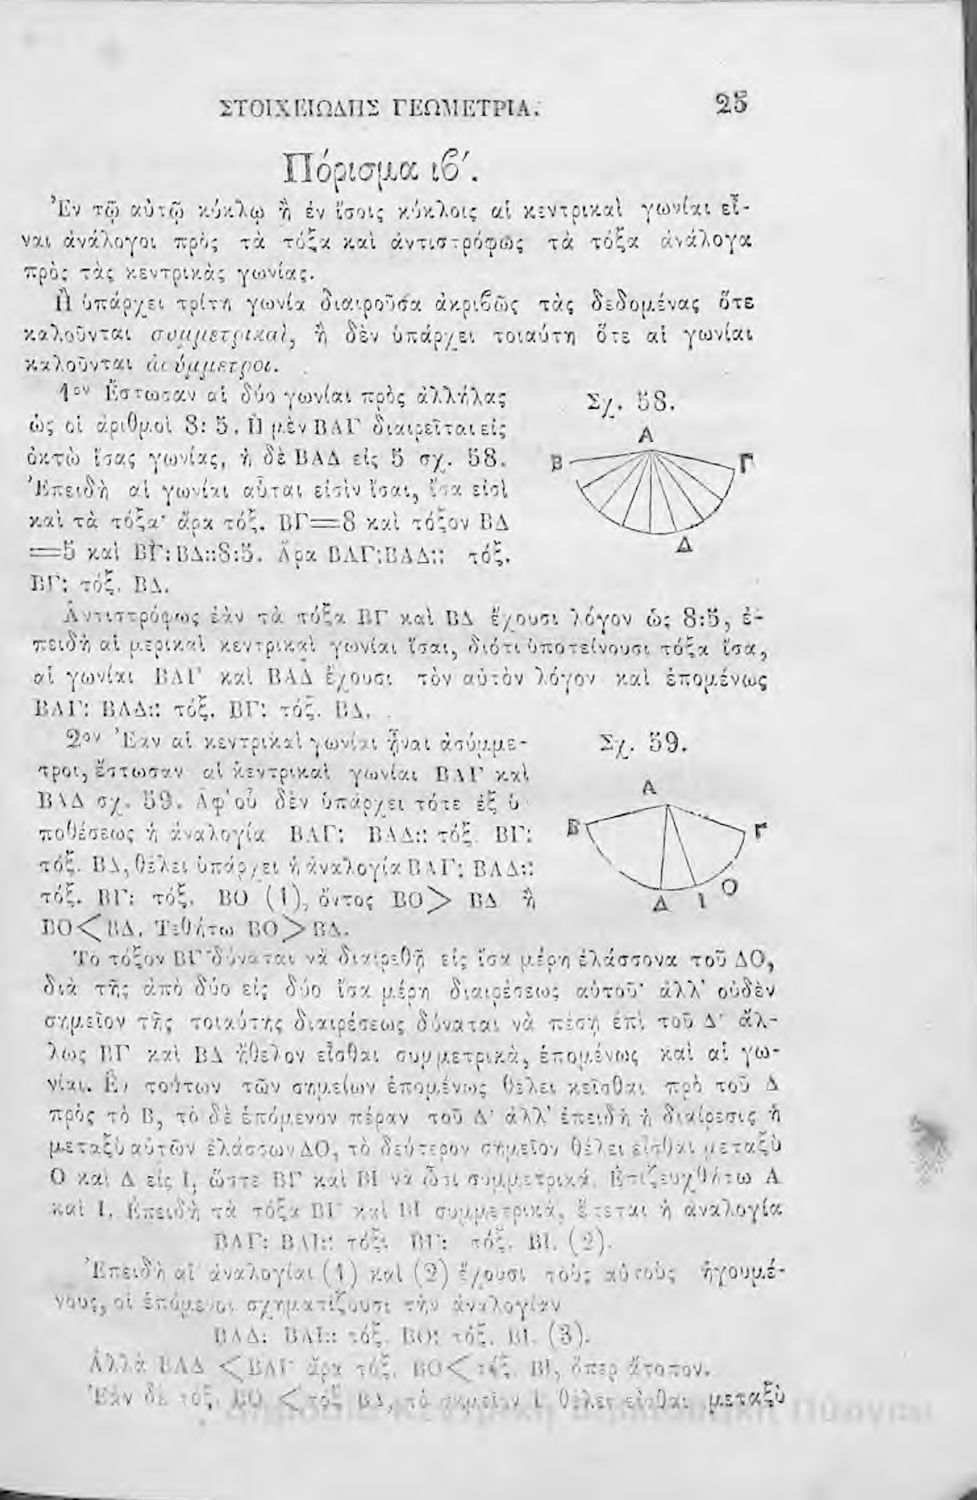 ΣΤΟΙΧΕΙΩΔΗΣ ΓΕΩΜΕΤΡΙΑ. 25
Πόρισμα ιϐʹ.
Ἐν τῷ αὐτῷ κύκλῳ ἢ ἐν ἴσοις κύκλοις αἱ κεντρικαὶ γωνίαι εἶ-
ναι ἀνάλογοι πρὸς τὰ τόξα καὶ ἀντιστρόφως τὰ τόξα ἀνάλογα
πρὸς τὰς κεντρικὰς γωνίας.
Ἢ ὑπάρχει τρίτη γωνία διαιροῦσα ἀκριϐῶς τὰς δεδομένας ὅτε
καλοῦνται συμμετρικαὶ, ἢ δὲν ὑπάρχει τοιαύτη ὅτε αἱ γωνίαι
καλοῦνται ἀσύμμετροι.
1ον Ἔστωσαν αἱ δύο γωνίαι πρὸς ἀλλήλας
ὡς οἱ ἀριθμοὶ 8: 5. Ἡ μὲν ΒΑΓ διαιρεῖται εἰς
ὀκτὼ ἴσας γωνίας, ἡ δὲ ΒΑΔ εἰς 5 σχ. 58.
Ἐπειδὴ αἱ γωνίαι αὗται εἰσὶν ἴσαι, ἴσα εἰσὶ
καὶ τὰ τόξα· ἄρα τόξ. ΒΓ=8 καὶ τόξον ΒΔ
=5 καὶ ΒΓ:ΒΔ::8:5. Ἄρα ΒΑΓ:ΒΑΔ:: τόξ.
ΒΓ: τόξ. ΒΔ.
Σχ. 58.
Α
Β Γ
Δ
Ἀντιστρόφως ἐὰν τὰ τόξα ΒΓ καὶ ΒΔ ἔχουσι λόγον ὡς 8:5, ἐ-
πειδὴ αἱ μερικαὶ κεντρικαὶ γωνίαι ἴσαι, διότι ὑποτείνουσι τόξα ἴσα,
αἱ γωνίαι ΒΑΓ καὶ ΒΑΔ ἔχουσι τὸν αὐτὸν λόγον καὶ ἑπομένως
ΒΑΓ: ΒΑΔ:: τόξ. ΒΓ: τόξ. ΒΔ.
2ον Ἐὰν αἱ κεντρικαὶ γωνίαι ἦναι ἀσύμμε-
τροι, ἔστωσαν αἱ κεντρικαὶ γωνίαι ΒΑΓ καὶ
ΒΑΔ σχ. 59. Ἀφ' οὗ δὲν ὑπάρχει τότε ἐξ ὑ
ποθέσεως ἡ ἀναλογία ΒΑΓ: ΒΑΔ:: τόξ. ΒΓ:
τόξ. ΒΔ, θέλει ὑπάρχει ἡ ἀναλογία ΒΑΓ: ΒΑΔ::
τόξ. ΒΓ: τόξ. ΒΟ (1), ὄντος ΒΟ> ΒΔ ἢ
ΒΟ<ΒΔ. Τεθήτω ΒΟ>ΒΔ.
Σχ. 59.
Α
Β Γ
Δ Ι Ο
Τὸ τόξον ΒΓ δύναται νὰ διαιρεθῇ εἰς ἴσα μέρη ἐλάσσονα τοῦ ΔΟ,
διὰ τῆς ἀπὸ δύο εἰς δύο ἴσα μέρη διαιρέσεως αὐτοῦ· ἀλλ' οὐδὲν
σημεῖον τῆς τοιαύτης διαιρέσεως δύναται νὰ πέσῃ ἐπὶ τοῦ Δ· ἄλ-
λως ΒΓ καὶ ΒΔ ἤθελον εἶσθαι συμμετρικὰ, ἑπομένως καὶ αἱ γω-
νίαι. Ἓν τούτων τῶν σημείων ἑπομένως θέλει κεῖσθαι πρὸ τοῦ Δ
πρὸς τὸ Β, τὸ δὲ ἑπόμενον πέραν τοῦ Δ· ἀλλ' ἐπειδὴ ἡ διαίρεσις ἡ
μεταξὺ αὐτῶν ἐλάσσων ΔΟ, τὸ δεύτερον σημεῖον θέλει εἶσθαι μεταξὺ
Ο καὶ Δ εἰς Ι, ὥστε ΒΓ καὶ ΒΙ νὰ ὦσι συμμετρικά. Ἐπιζευχθήτω Α
καὶ Ι. Ἐπειδὴ τὰ τόξα ΒΓ καὶ ΒΙ συμμετρικὰ, ἕπεται ἡ ἀναλογία
ΒΑΓ: ΒΑΙ:: τόξ. ΒΓ: τόξ. ΒΙ. (2).
Ἐπειδὴ αἱ ἀναλογίαι (1) καὶ (2) ἔχουσι τοὺς αὐτοὺς ἡγουμέ-
νους, οἱ ἑπόμενοι σχηματίζουσι τὴν ἀναλογίαν
ΒΑΔ: ΒΑΙ:: τόξ. ΒΟ: τόξ. ΒΙ. (3).
Ἀλλὰ ΒΑΔ <ΒΑΙ ἄρα τόξ. ΒΟ< τόξ. ΒΙ, ὅπερ ἄτοπον.
Ἐὰν δὲ τόξ. ΒΟ < τόξ ΒΔ, τὸ σημεῖον Ι θέλει εἶσθαι μεταξὺ